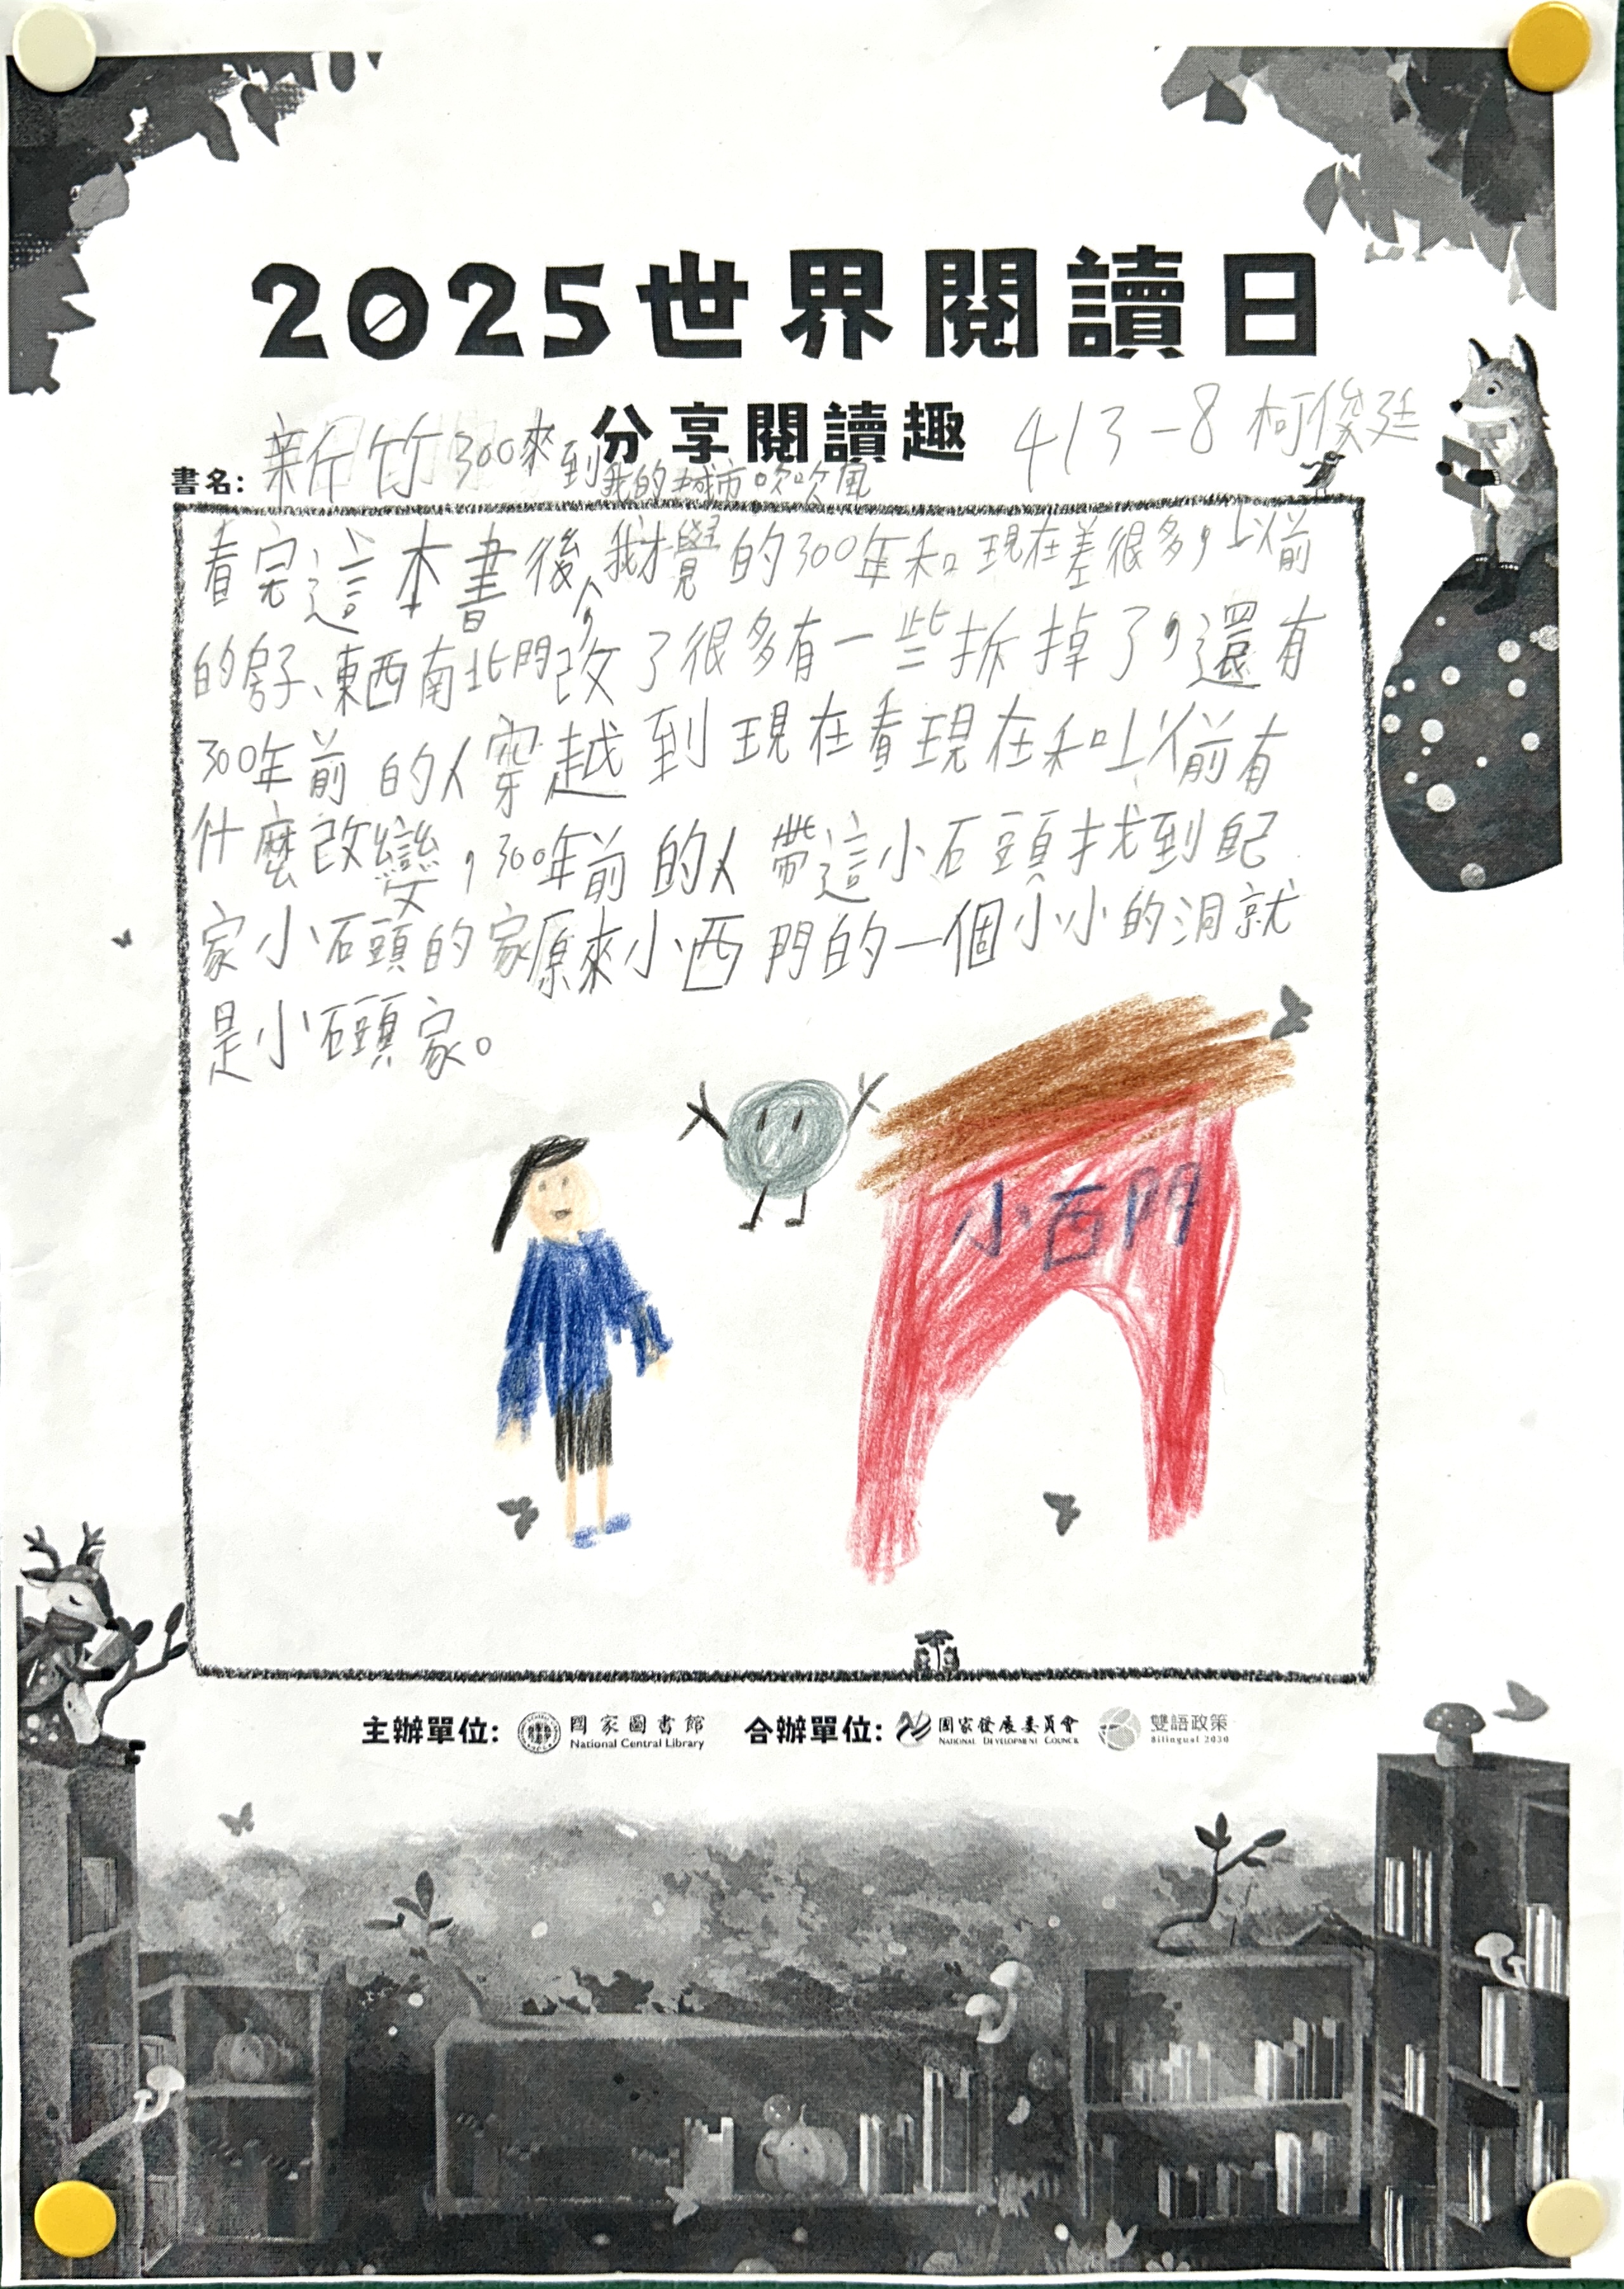 2025世界閱讀日
分享閱讀趣
413-8 柯俊廷
書名: 新竹300來到我的城市吹吹風
看完這本書後,我才覺的300年和現在差很多,以前
的房子、東西南北門改了很多有一些拆掉了,還有
300年前的人穿越到現在看現在和以前有
什麼改變,300年前的人帶這小石頭找到自己
家小石頭的家原來小西門的一個小小的洞就
是小石頭家。
小西門
主辦單位: 國家圖書館 National Central Library 合辦單位: 國家發展委員會 National Development Council 雙語政策 Bilingual 2030